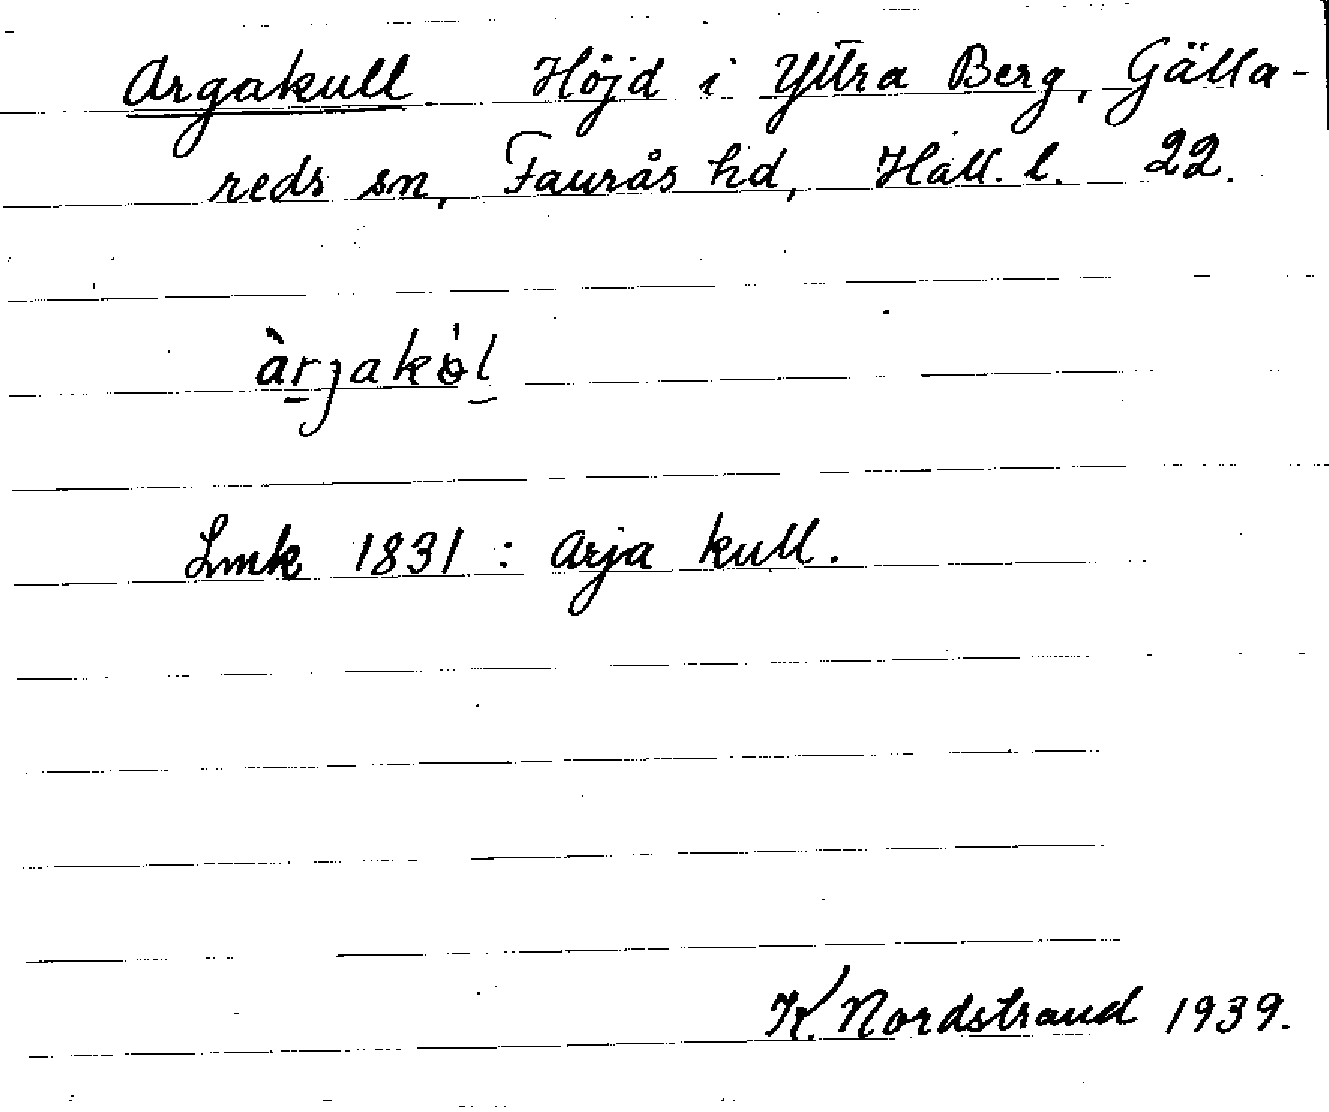 Argakull Höjd i Yttra Berg, Gälla-
reds sn, Faurås hd, Hall. l. 22.
àrjakòl
Lmk 1831 : Arja kull.
K. Nordstrand 1939.